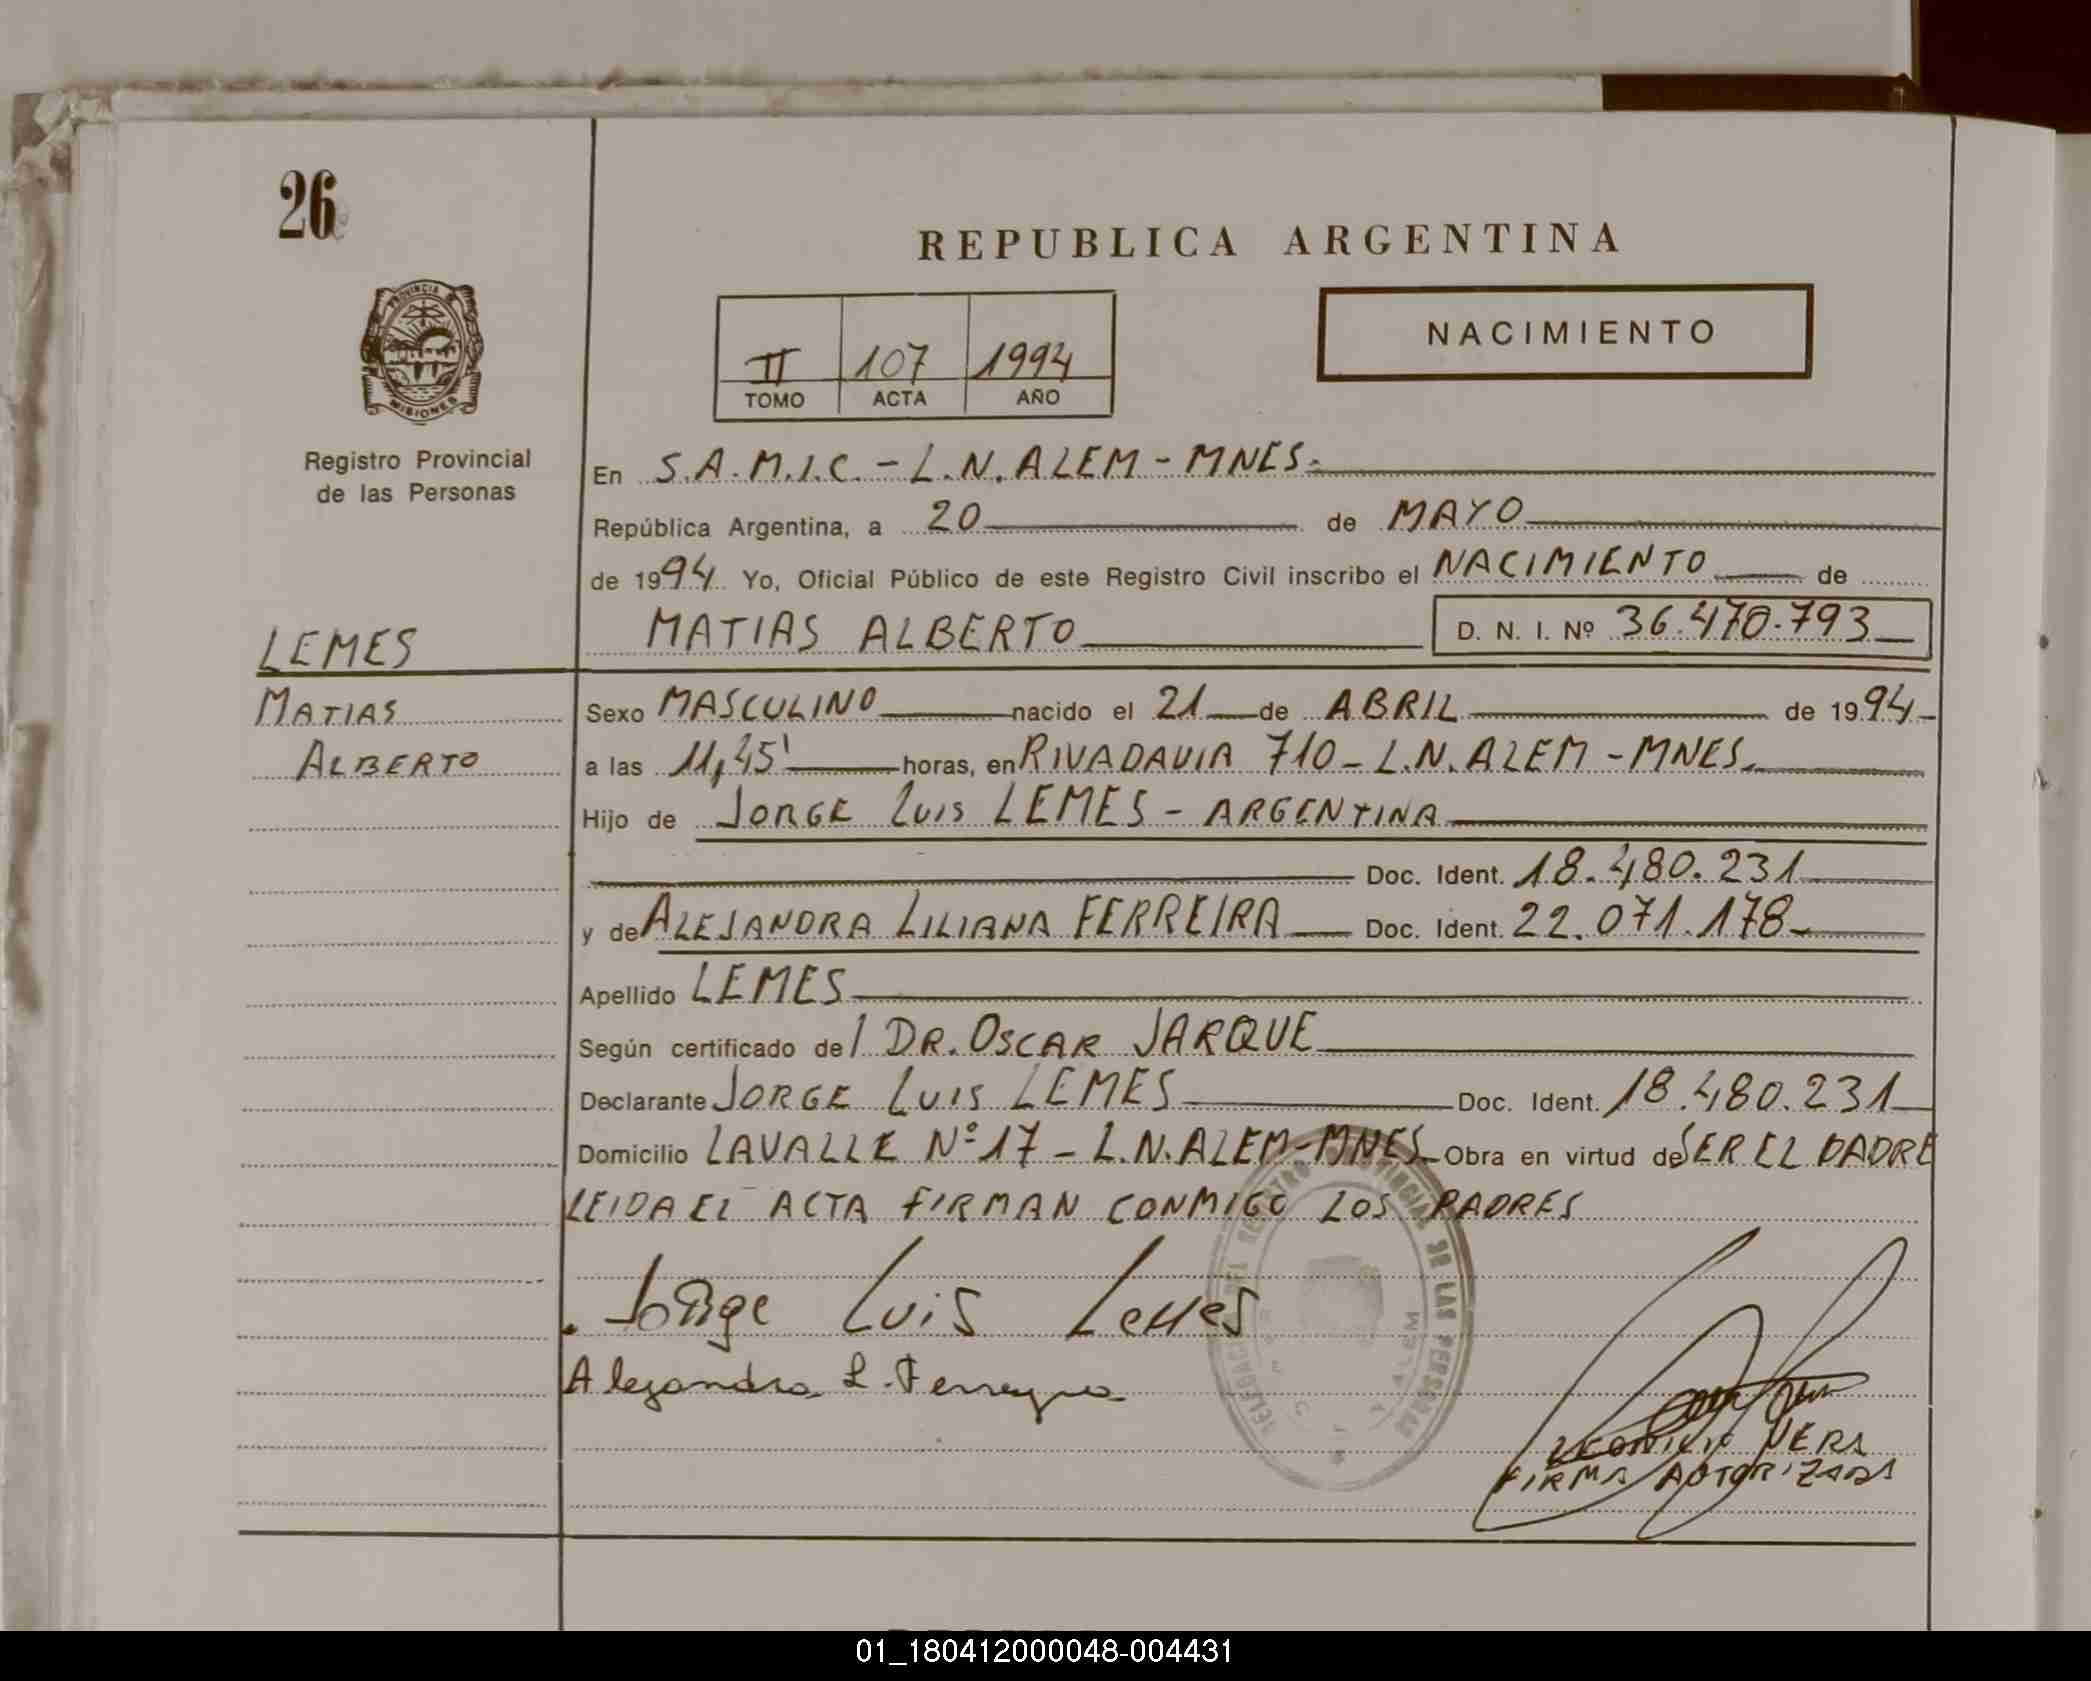 26
REPUBLICA ARGENTINA
NACIMIENTO
II 107 1994
TOMO ACTA AÑO
PROVINCIA DE
MISIONES
Registro Provincial
de las Personas
En S.A.M.I.C. - L.N. ALEM - MNES.
República Argentina, a 20 de MAYO
de 1994 Yo, Oficial Público de este Registro Civil inscribo el NACIMIENTO de
MATIAS ALBERTO D. N. I. Nº 36.470.793
LEMES
MATIAS
ALBERTO
Sexo MASCULINO nacido el 21 de ABRIL de 1994
a las 11,45' horas, en RIVADAVIA 710 - L.N. ALEM - MNES.
Hijo de JORGE LUIS LEMES - ARGENTINA
Doc. Ident. 18.480.231
y de ALEJANDRA LILIANA FERREIRA Doc. Ident. 22.071.178
Apellido LEMES
Según certificado de/ DR. OSCAR JARQUE
Declarante JORGE LUIS LEMES Doc. Ident. 18.480.231
Domicilio LAVALLE Nº 17 - L.N. ALEM - MNES. Obra en virtud de SER EL PADRE
LEIDA EL ACTA FIRMAN CONMIGO LOS PADRES
Jorge Luis Lemes
Alejandra L. Ferreyra
DELEGACION DEL REGISTRO PROVINCIAL DE LAS PERSONAS
ALEM
VERA
FIRMA AUTORIZADA
01_180412000048-004431